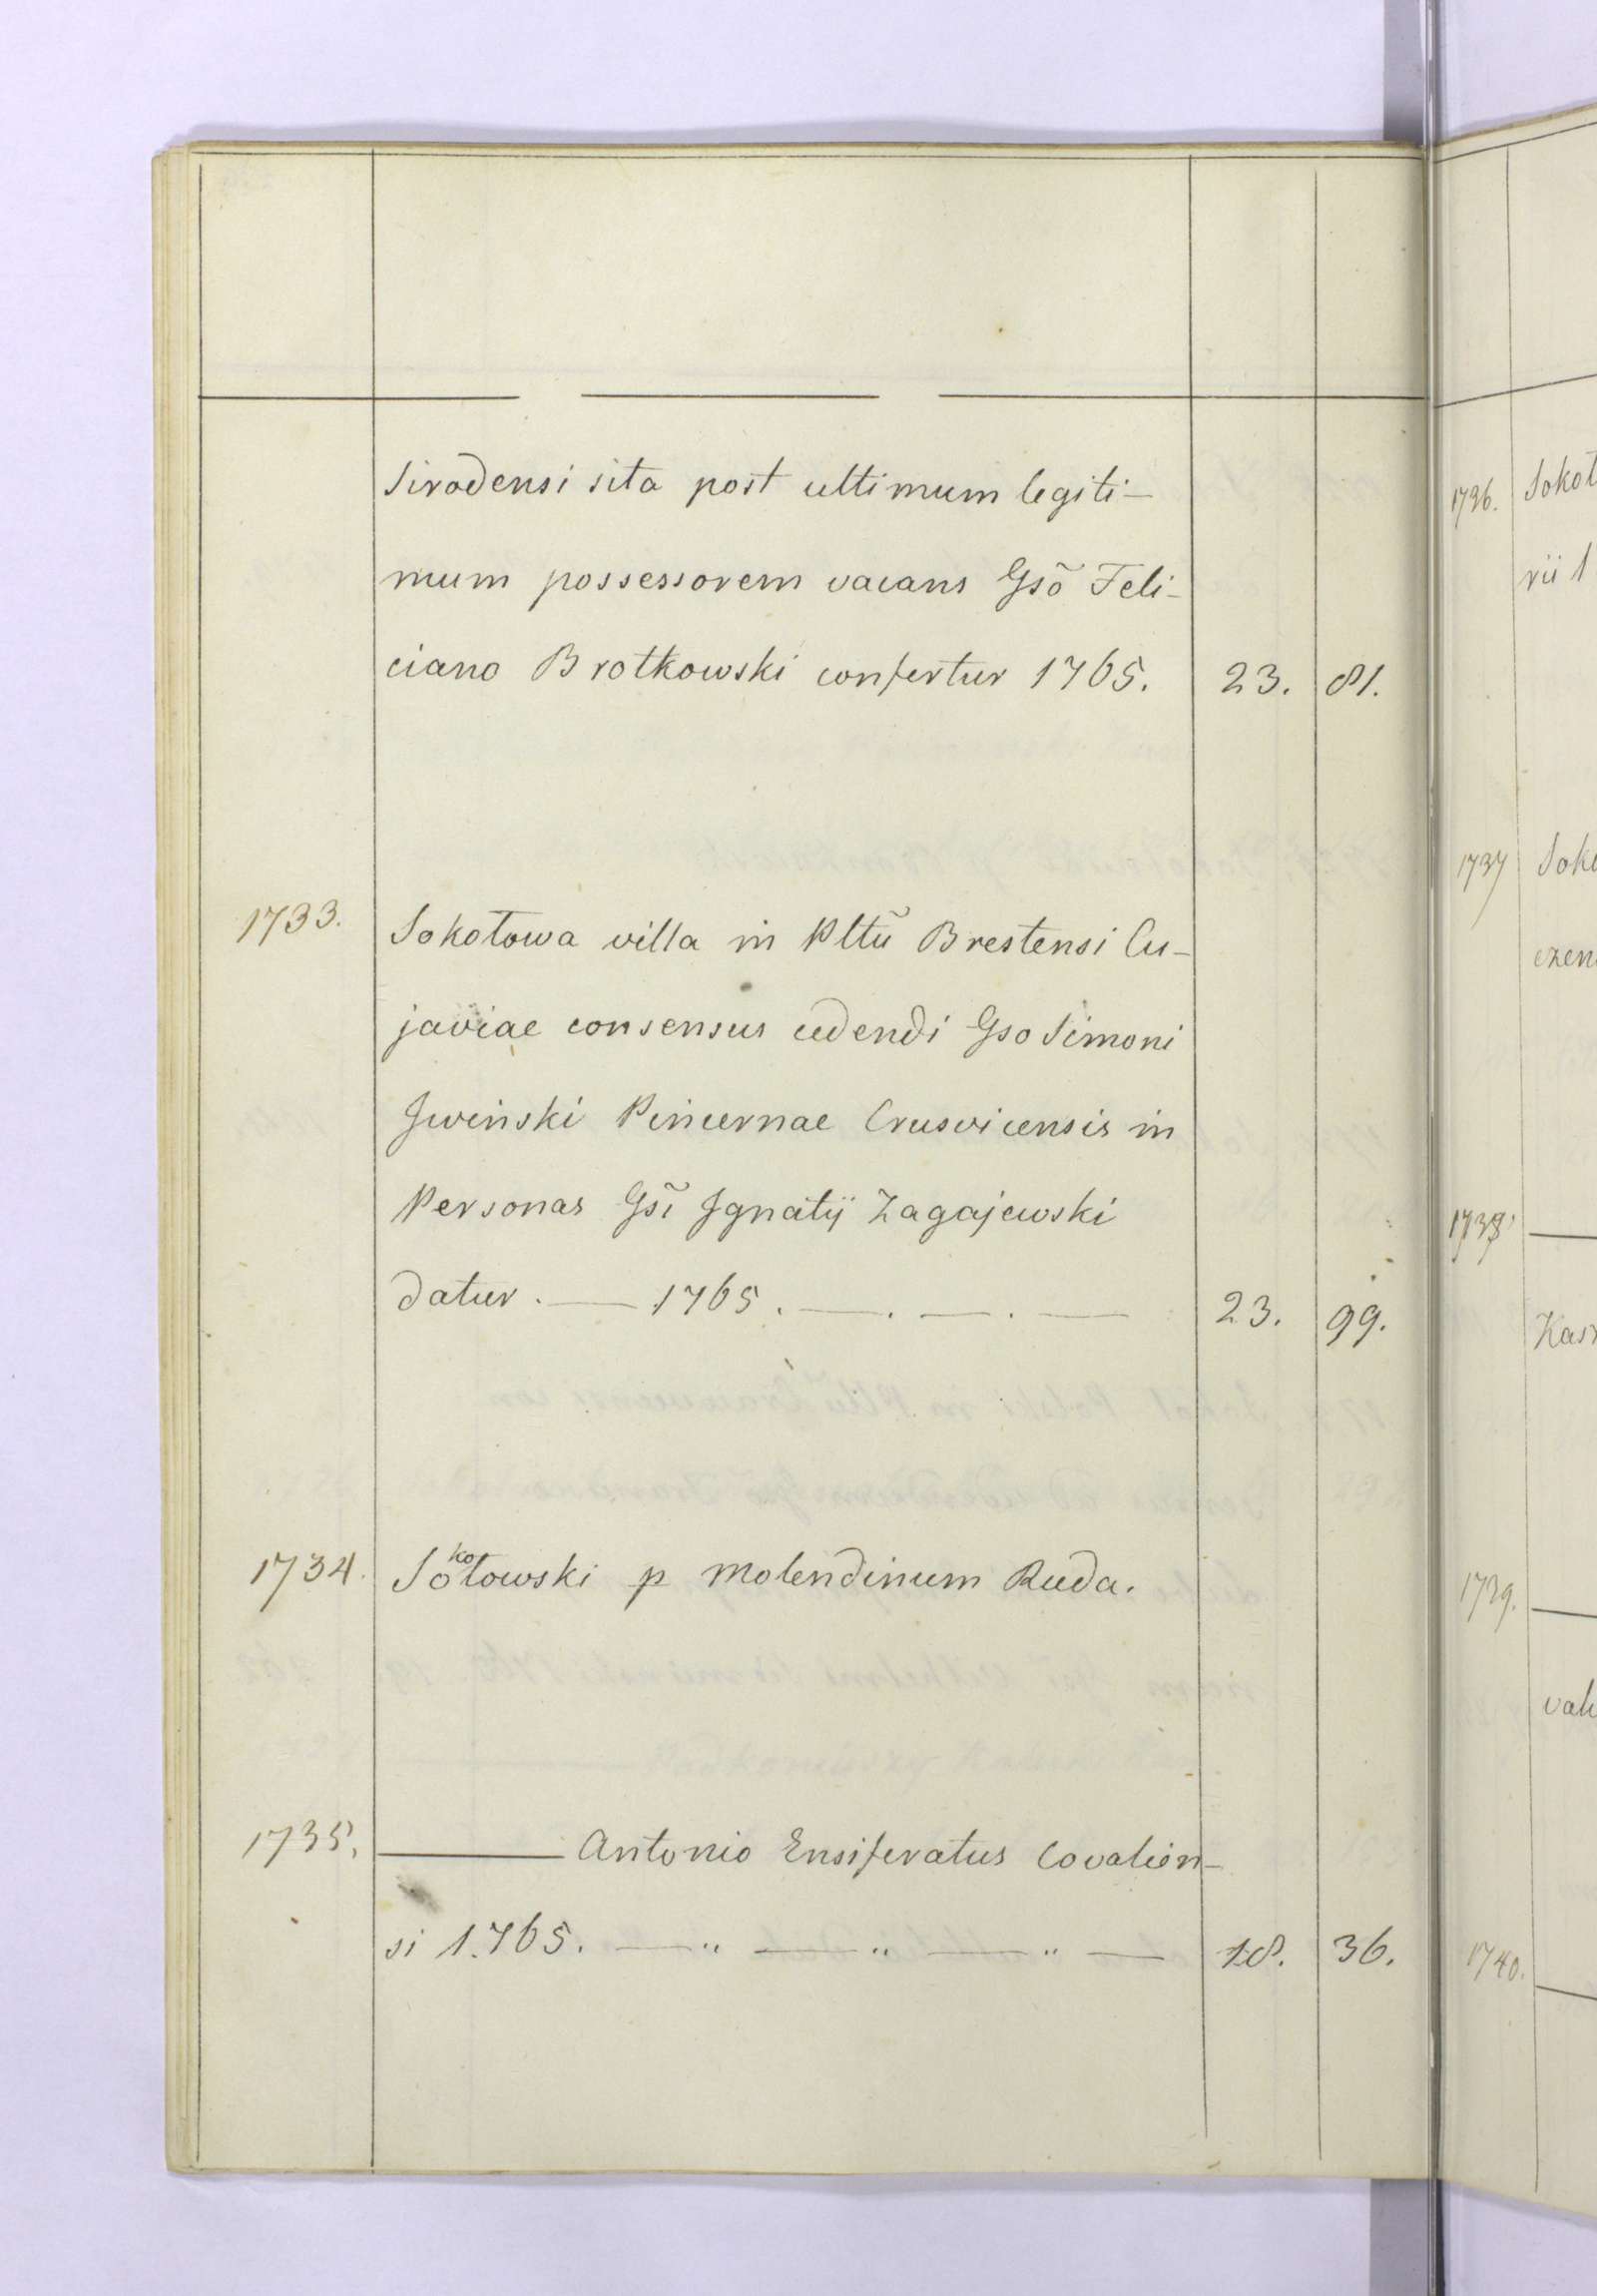 Siradensi sita post ultimum legiti-
mum possessorem vacans Gsõ Feli-
ciano Brotkowski confertur 1765. 23. 81.
1733. Sokołowa villa in Plttũ Brestensi Cu-
javiae consensus cedendi Gso Simoni
Iwinski Pincernae Crusvicensis in
Personas Gsĩ Ignatij Zagajewski
datur. — 1765. —. —. — 23. 99.
1734. Sokołowski p Molendinum Ruda.
1735. — Antonio Ensiferatus Covalien-
si 1765. — " — " — " — 18. 36.
1736. Sokoł
rii 1
1737 Soko
czen
1738. —
Kas
1739. —
vali
1740. —